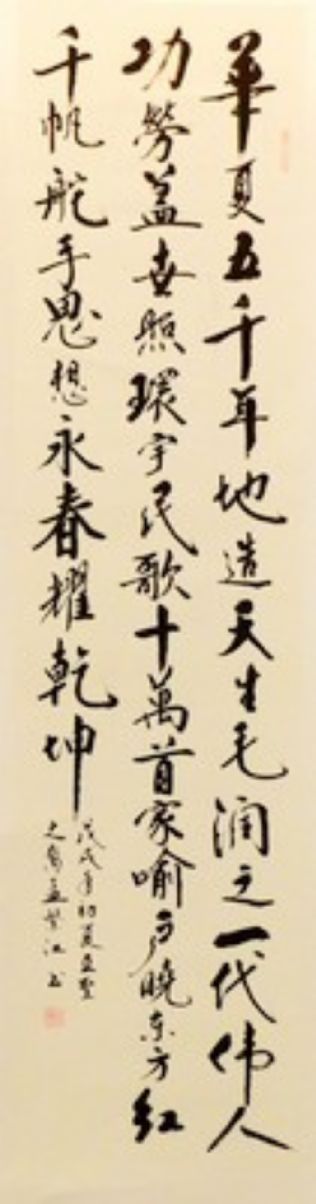 華夏五千年地造天生毛润之一代伟人
功勞盖世照環宇民歌十萬首家喻户曉东方红
千帆舵手思想永春耀乾坤
戊戌年初夏亚聖
之裔孟江书